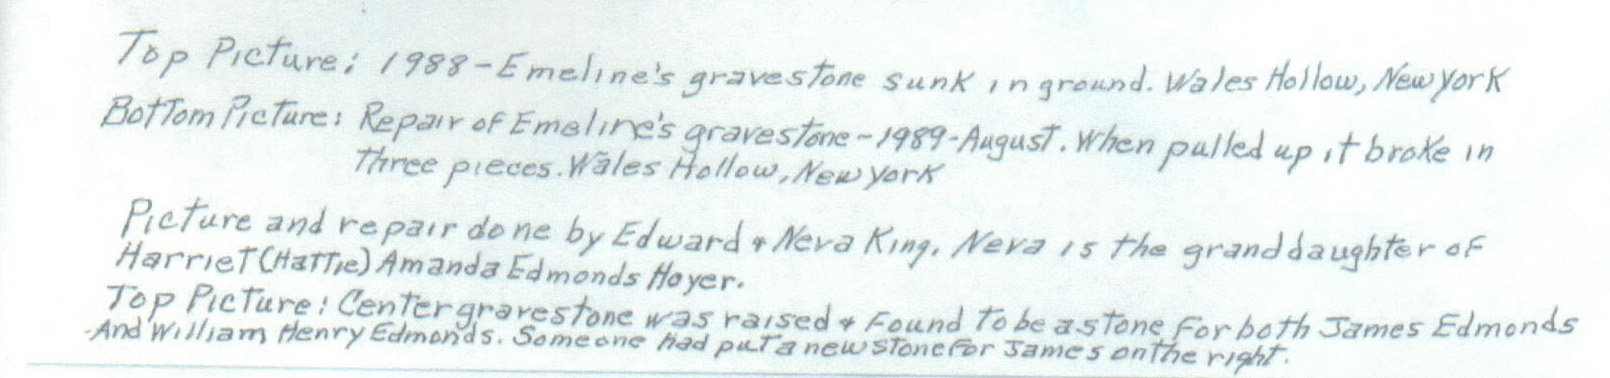 Top Picture: 1988-Emeline's gravestone sunk in ground. Wales Hollow, New York
Bottom Picture: Repair of Emeline's gravestone-1989-August. When pulled up it broke in
three pieces. Wales Hollow, New York
Picture and repair done by Edward & Neva King. Neva is the granddaughter of
Harriet (Hattie) Amanda Edmonds Hoyer.
Top Picture: Center gravestone was raised & found to be a stone for both James Edmonds
And William Henry Edmonds. Someone had put a new stone for James on the right.